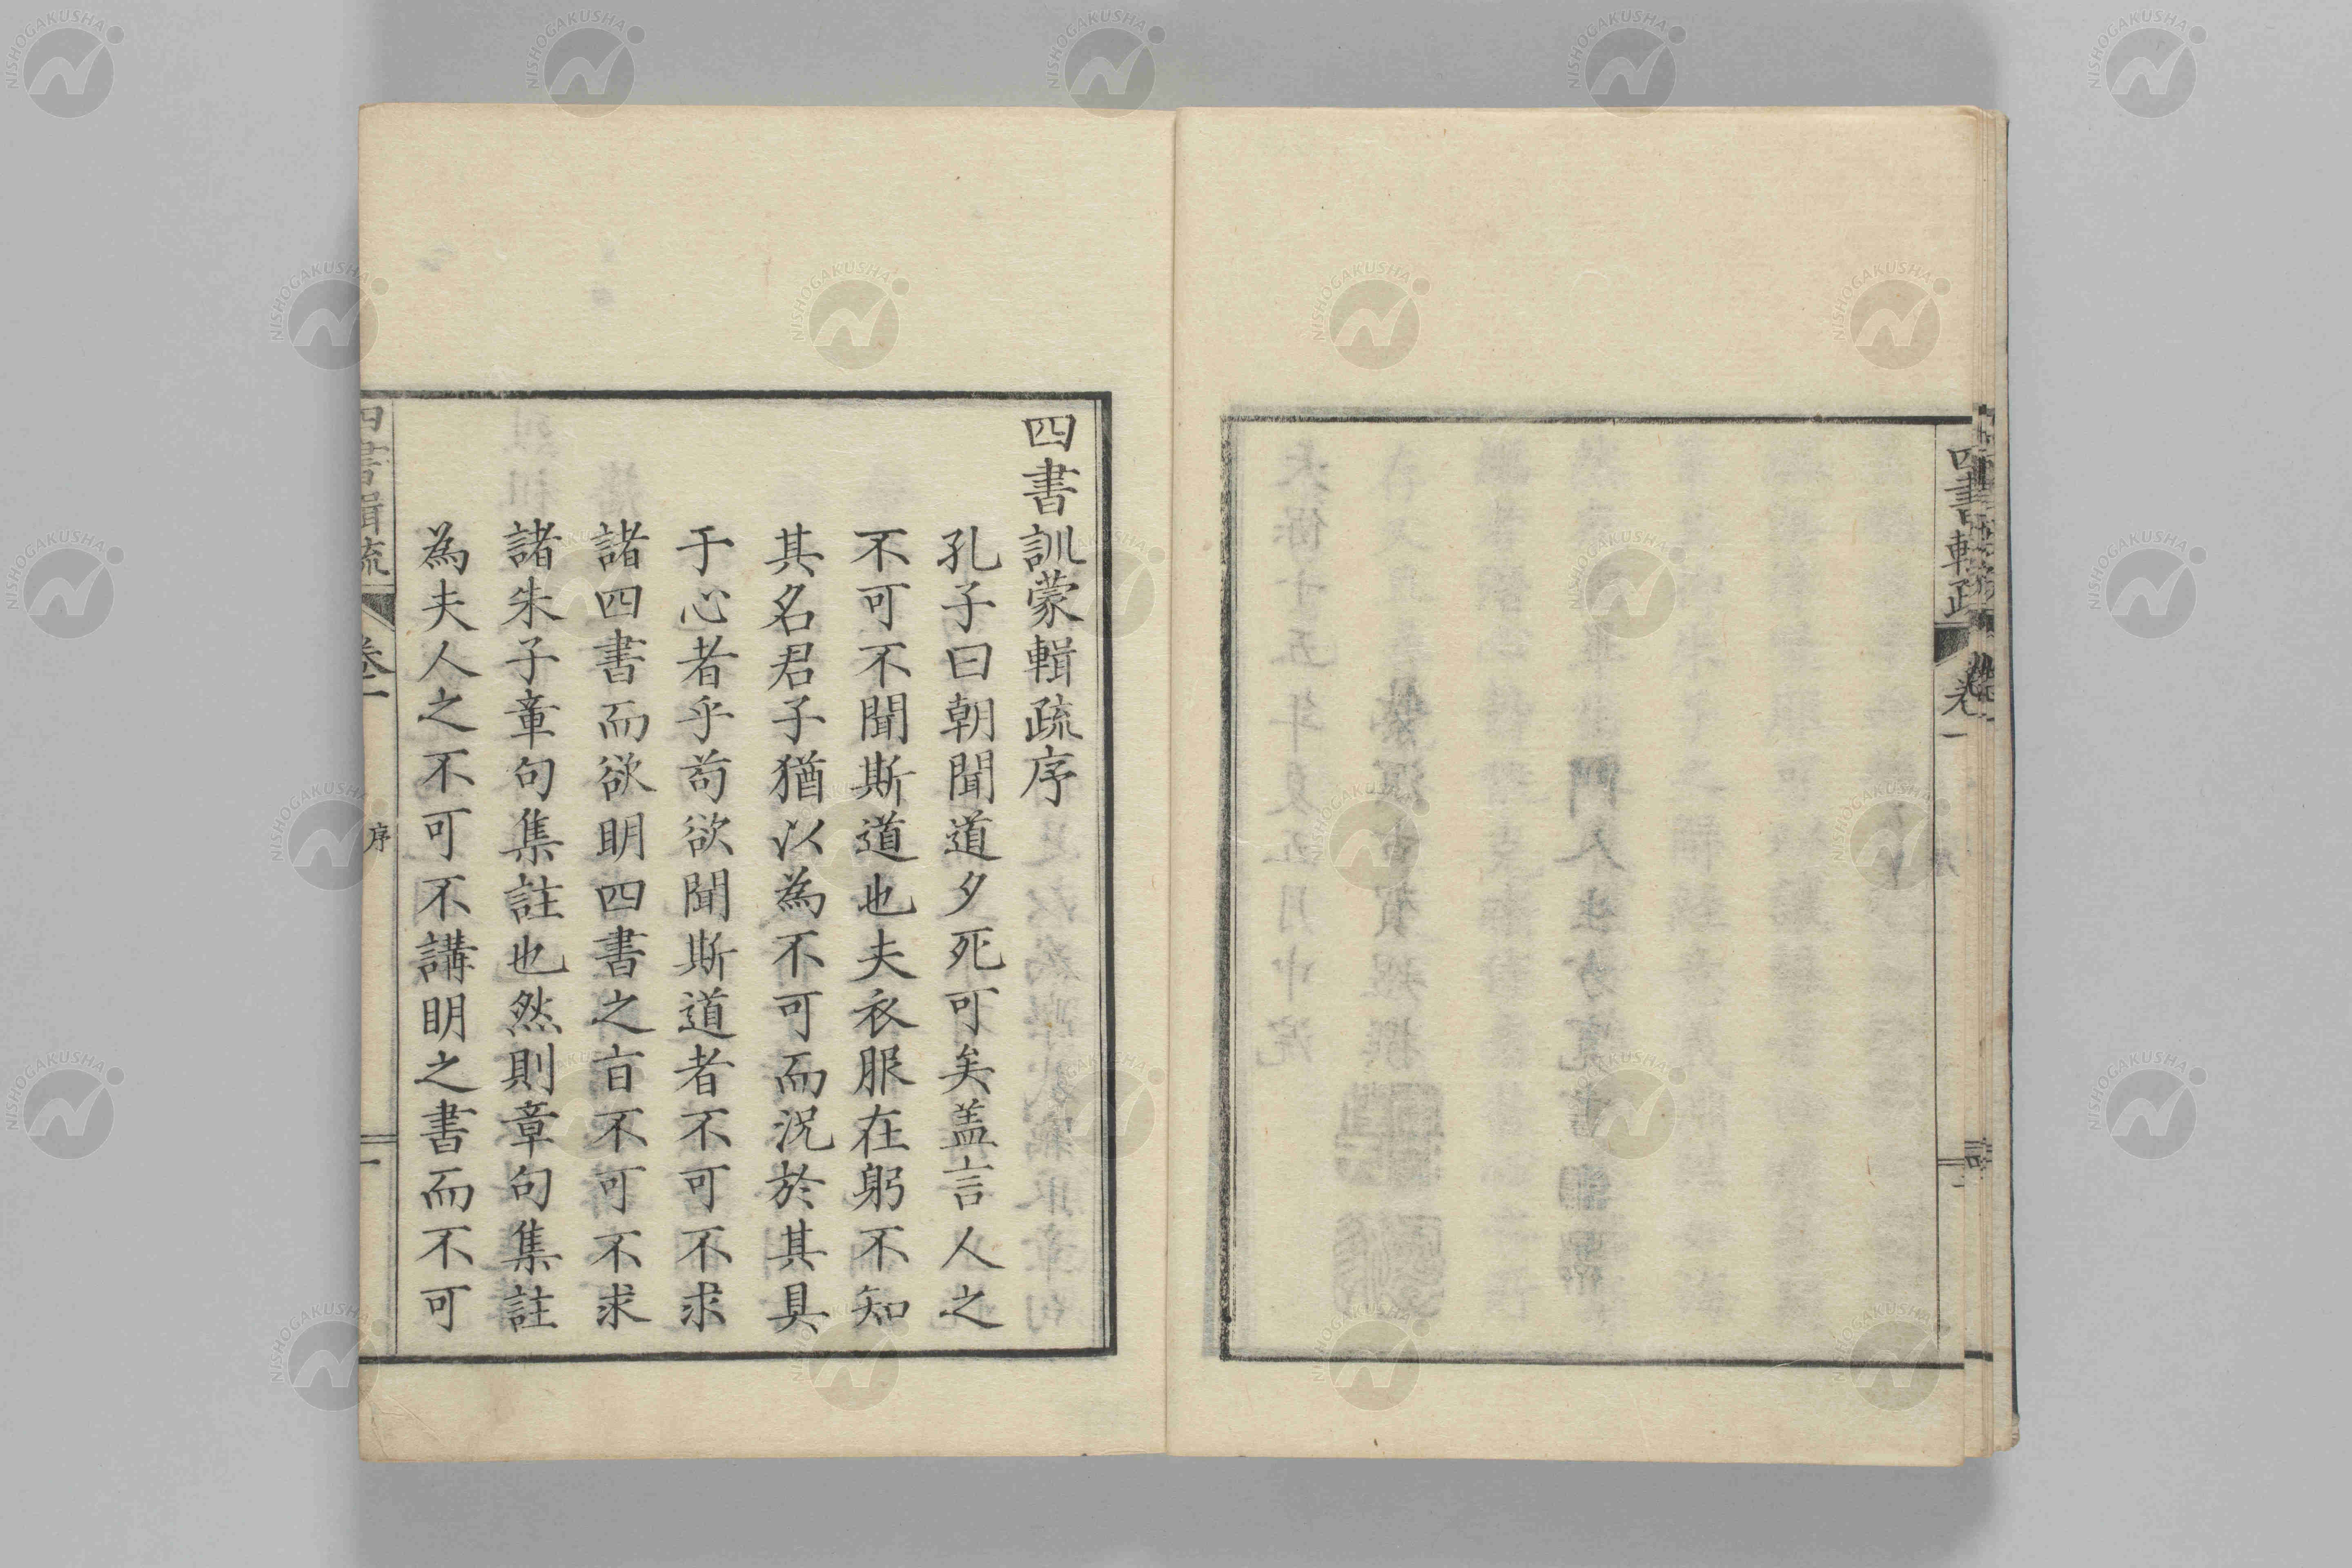 四書輯疏
卷一
四書訓蒙輯疏序
孔子曰朝聞道夕死可矣盖言人之
不可不聞斯道也夫衣服在躬不知
其名君子猶以為不可而況於其具
于心者乎苟欲聞斯道者不可不求
諸四書而欲明四書之旨不可不求
諸朱子章句集註也然則章句集註
為夫人之不可不講明之書而不可
四書輯疏
卷一
序
一
NISHOGAKUSHA